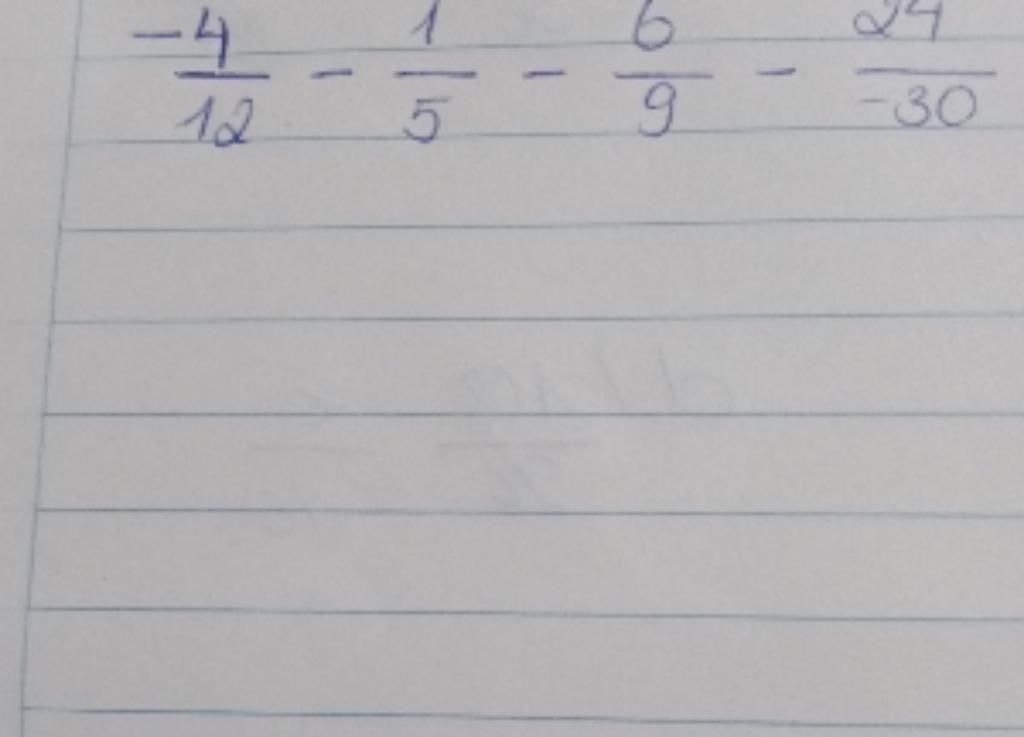 -4/12 - 1/5 - 6/9 - 24/-30